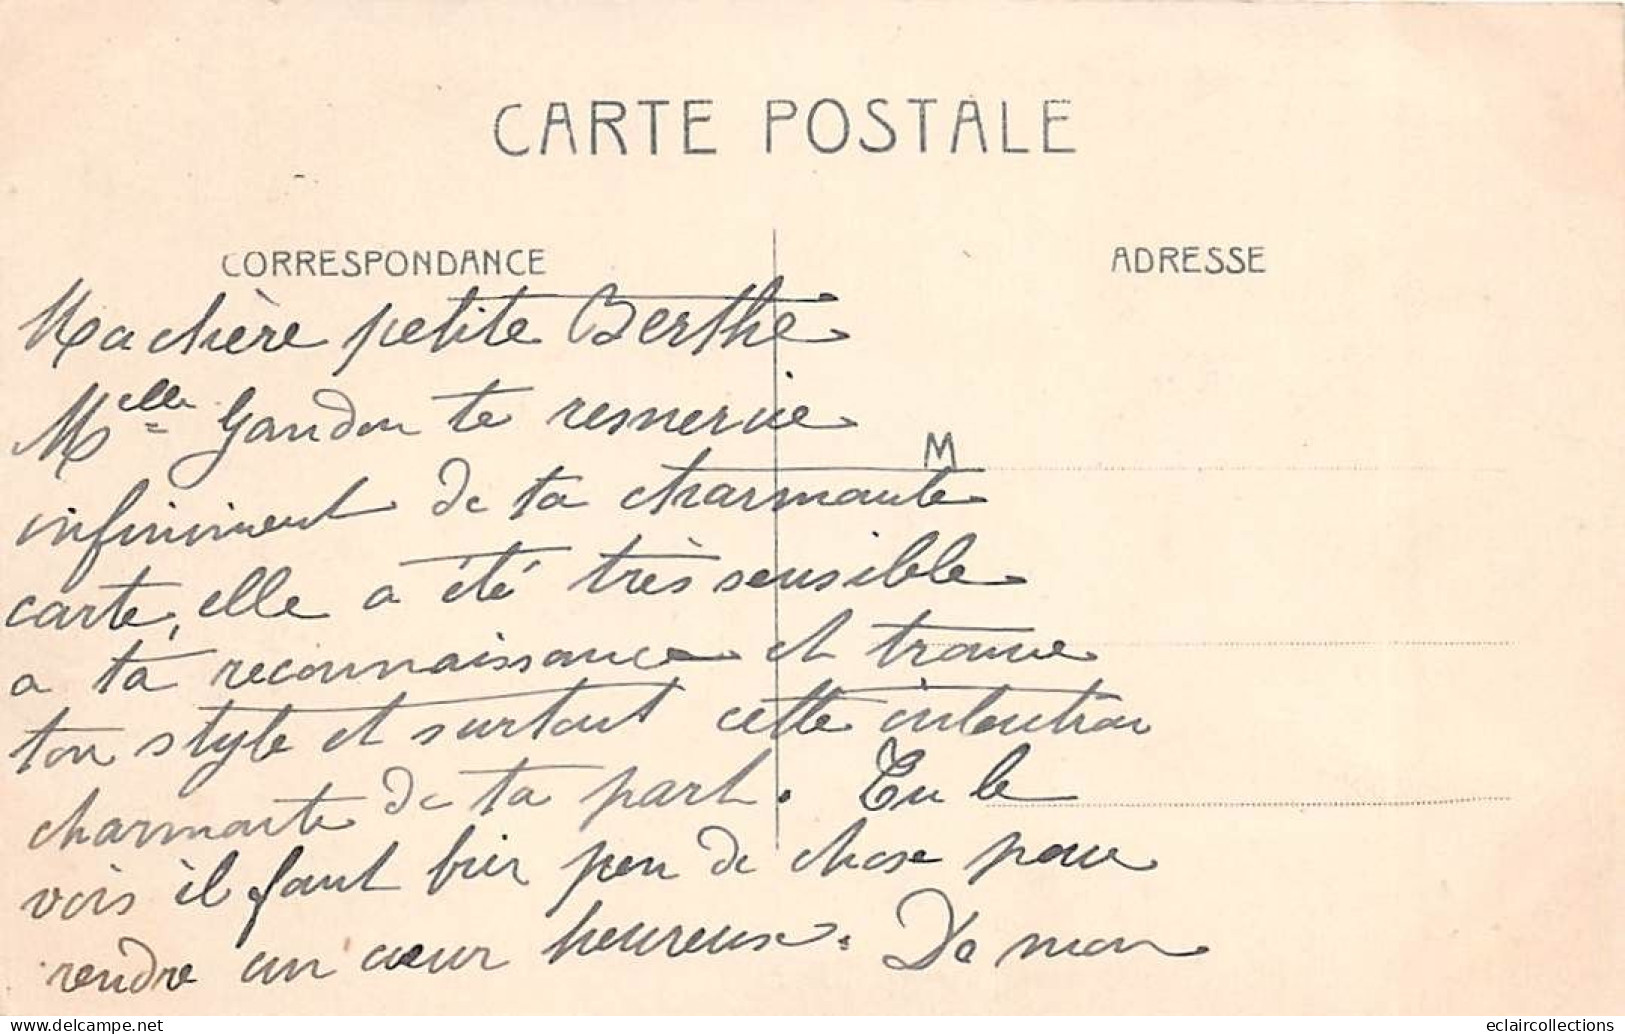 CARTE POSTALE
CORRESPONDANCE
ADRESSE
Ma chère petite Berthe
Melle Gandon te remercie
M
infiniment de ta charmante
carte, elle a été très sensible
a ta reconnaissance et trouve
ton style et surtout cette intention
charmante de ta part. Tu le
vois il faut bien peu de chose pour
rendre un cœur heureux. De mon
eclaircollections